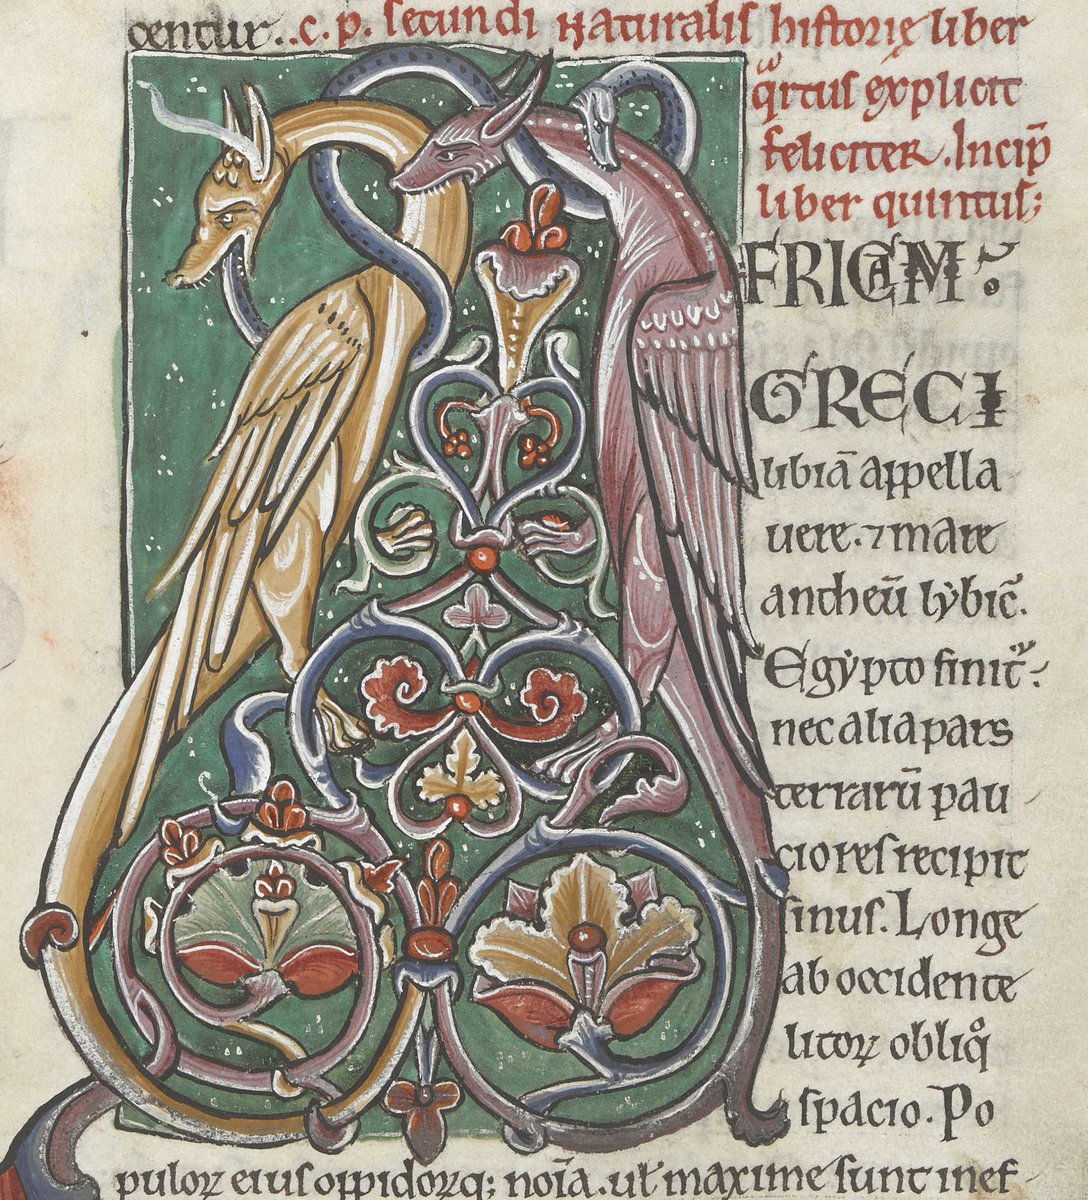 centur. .c. p. secundi Naturalis historię liber
qͦrtus explicit
feliciter. Incip̄
liber quintus;
AFRICAM
GRECI
libiā appella
uere. ⁊ mare
antheū lybic᷒.
Egypto finit᷒.
nec alia pars
terrarū pau
ciores recipit
sinus. Longe
ab occidente
litoꝝ obliqͦ
spacio. Po
puloꝝ eius oppidorūq; noīa. ul̄ maxime sunt inef-